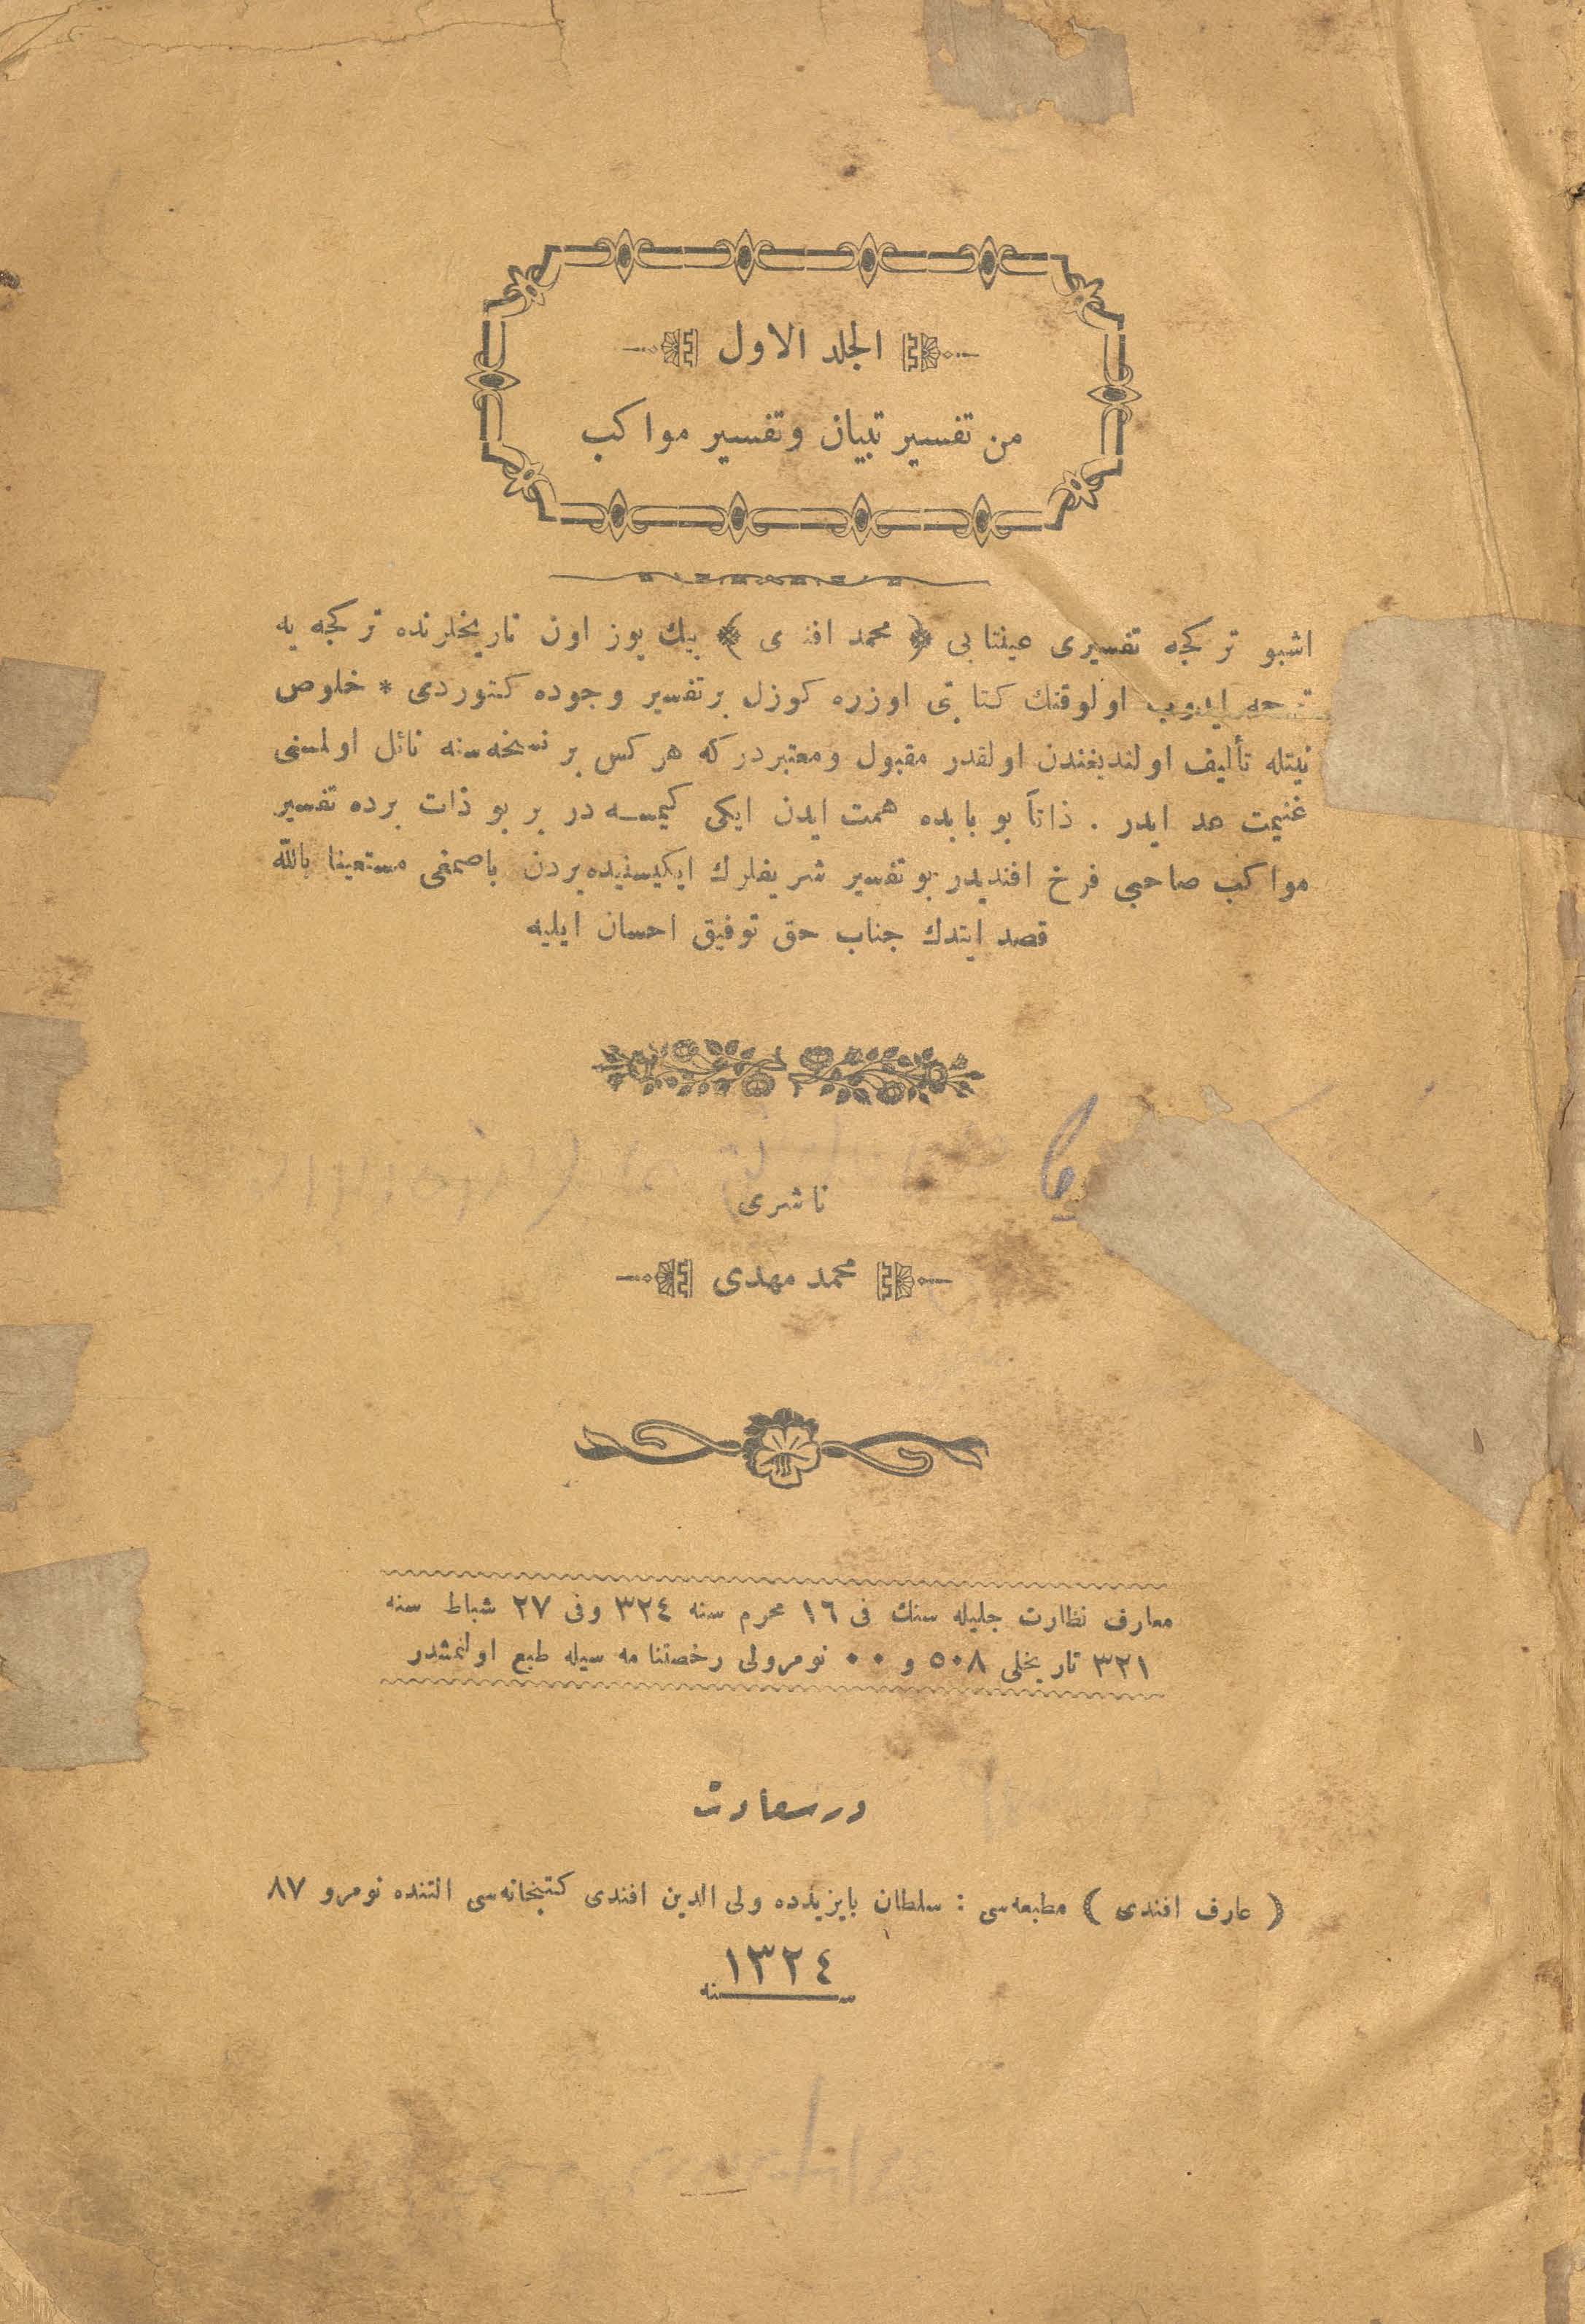 الجلد الاول
من تفسير تبيان وتفسير مواكب
اشبو تركجه تفسيرى عينتابى ﴿ محمد افندى ﴾ بيك يوز اون تاريخلرنده تركجه يه
ترجمه ايدوب اولوقتك كتابتى اوزره كوزل بر تفسير وجوده كتوردى * خلوص
نيتله تأليف اولنديغندن اولقدر مقبول ومعتبردركه هركس بر نسخه سنه نائل اولمسنى
غنيمت عد ايدر . ذاتاً بو بابده همت ايدن ايكى كيمسه در بر بو ذات برده تفسير
مواكب صاحبى فرخ افنديدر بو تفسير شريفلرك ايكيسنيده بردن باصمغى مستعينا بالله
قصد ايتدك جناب حق توفيق احسان ايليه
ناشرى
محمد مهدى
معارف نظارت جليله سنك فى ١٦ محرم سنه ٣٢٤ وفى ٢٧ شباط سنه
٣٢١ تاريخلى ٥٠٨ و ٠٠ نومرولى رخصتنامه سيله طبع اولنمشدر
درسعادت
( عارف افندى ) مطبعه سى : سلطان بايزيدده ولى الدين افندى كتبخانه سى التنده نومرو ٨٧
١٣٢٤
سنه